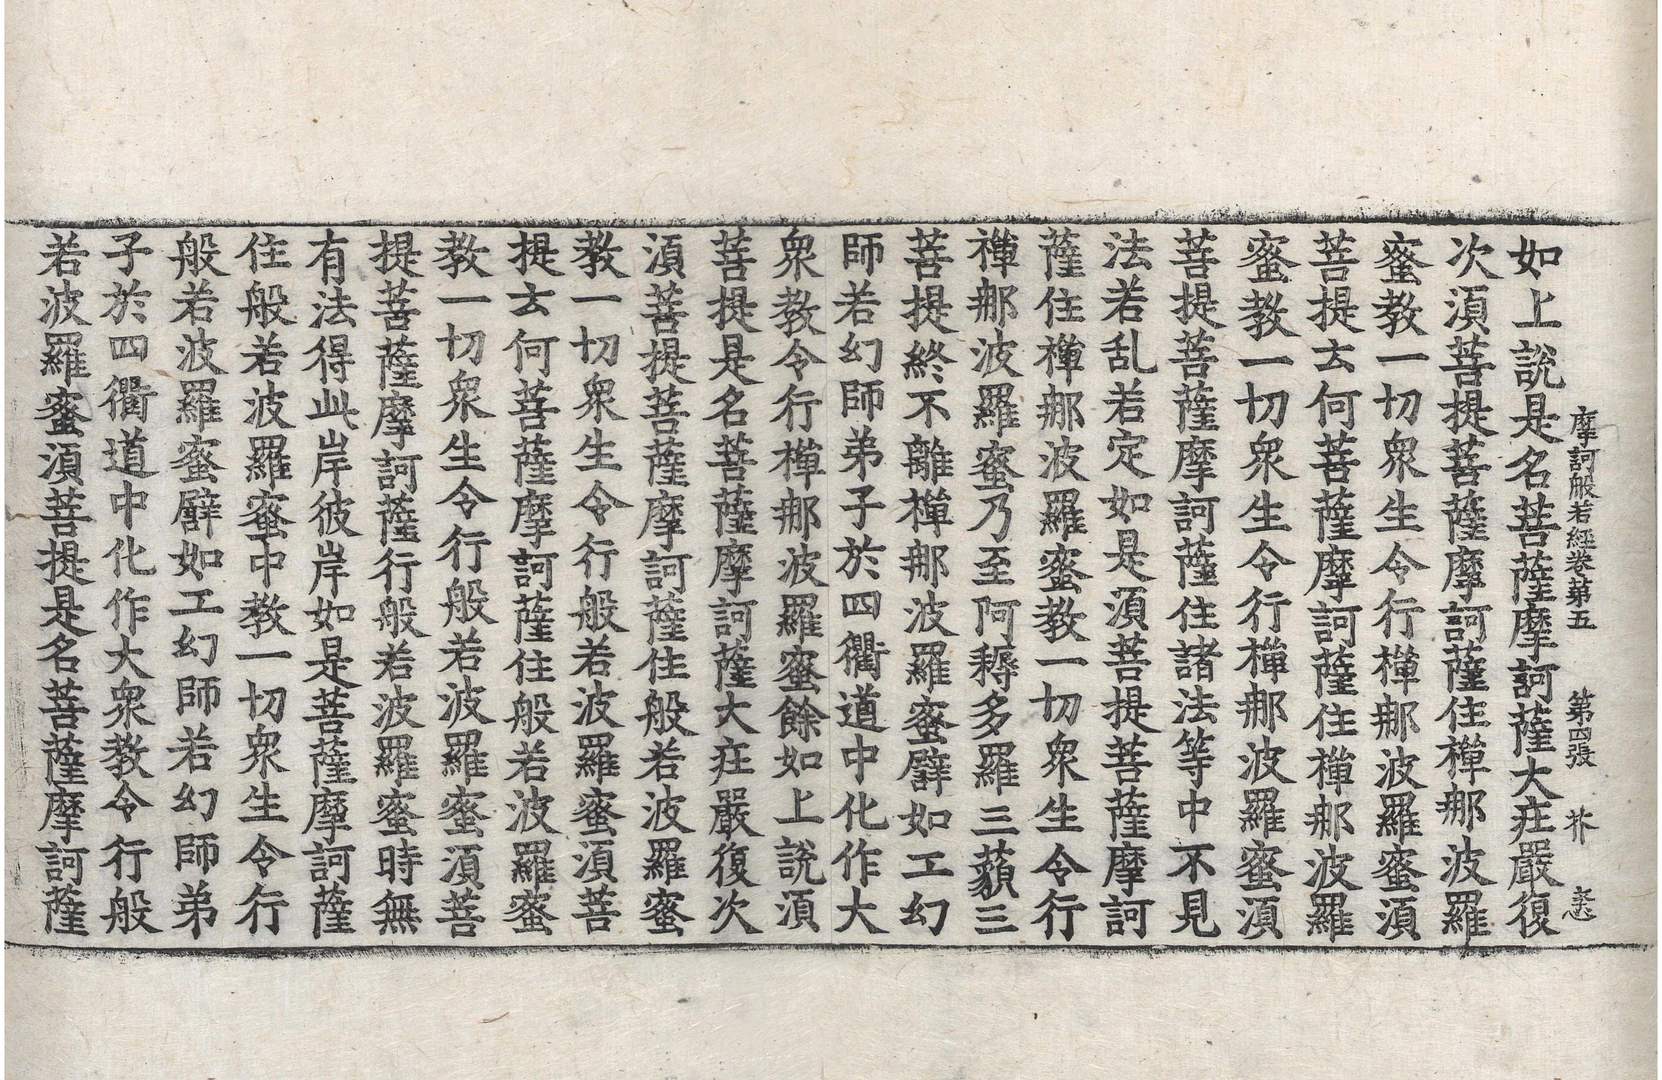 摩訶般若經卷苐五 第四張 芥
如上說是名菩薩摩訶薩大疘嚴復
次湏菩提菩薩摩訶薩住禪那波羅
蜜教一切衆生令行禪那波羅蜜湏
菩提云何菩薩摩訶薩住禪那波羅
蜜教一切衆生令行禪那波羅蜜湏
菩提菩薩摩訶薩住諸法等中不見
法若乱若定如是湏菩提菩薩摩訶
薩住禪那波羅蜜教一切衆生令行
禪那波羅蜜乃至阿耨多羅三藐三
菩提終不離禪那波羅蜜譬如工幻
師若幻師弟子於四衢道中化作大
衆教令行禪那波羅蜜餘如上說湏
菩提是名菩薩摩訶薩大疘嚴復次
湏菩提菩薩摩訶薩住般若波羅蜜
教一切衆生令行般若波羅蜜湏菩
提云何菩薩摩訶薩住般若波羅蜜
教一切衆生令行般若波羅蜜湏菩
提菩薩摩訶薩行般若波羅蜜時無
有法得此岸彼岸如是菩薩摩訶薩
住般若波羅蜜中教一切衆生令行
般若波羅蜜譬如工幻師若幻師弟
子於四衢道中化作大衆教令行般
若波羅蜜湏菩提是名菩薩摩訶薩